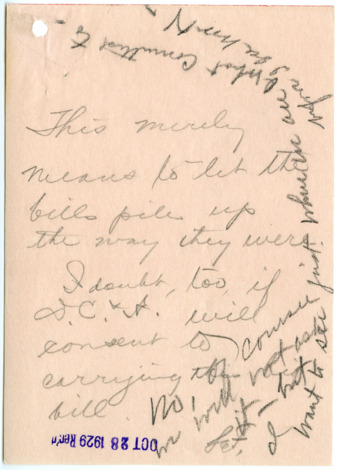 This merely
means to let the
bills pile up
the way they were.
I doubt, too, if
D.C. & A. will
consent to
carrying the
bill.
No, of course
we will not ask
it - but
I want to see just where we are
when
What Committed to -
OCT 28 1929 Rec'd